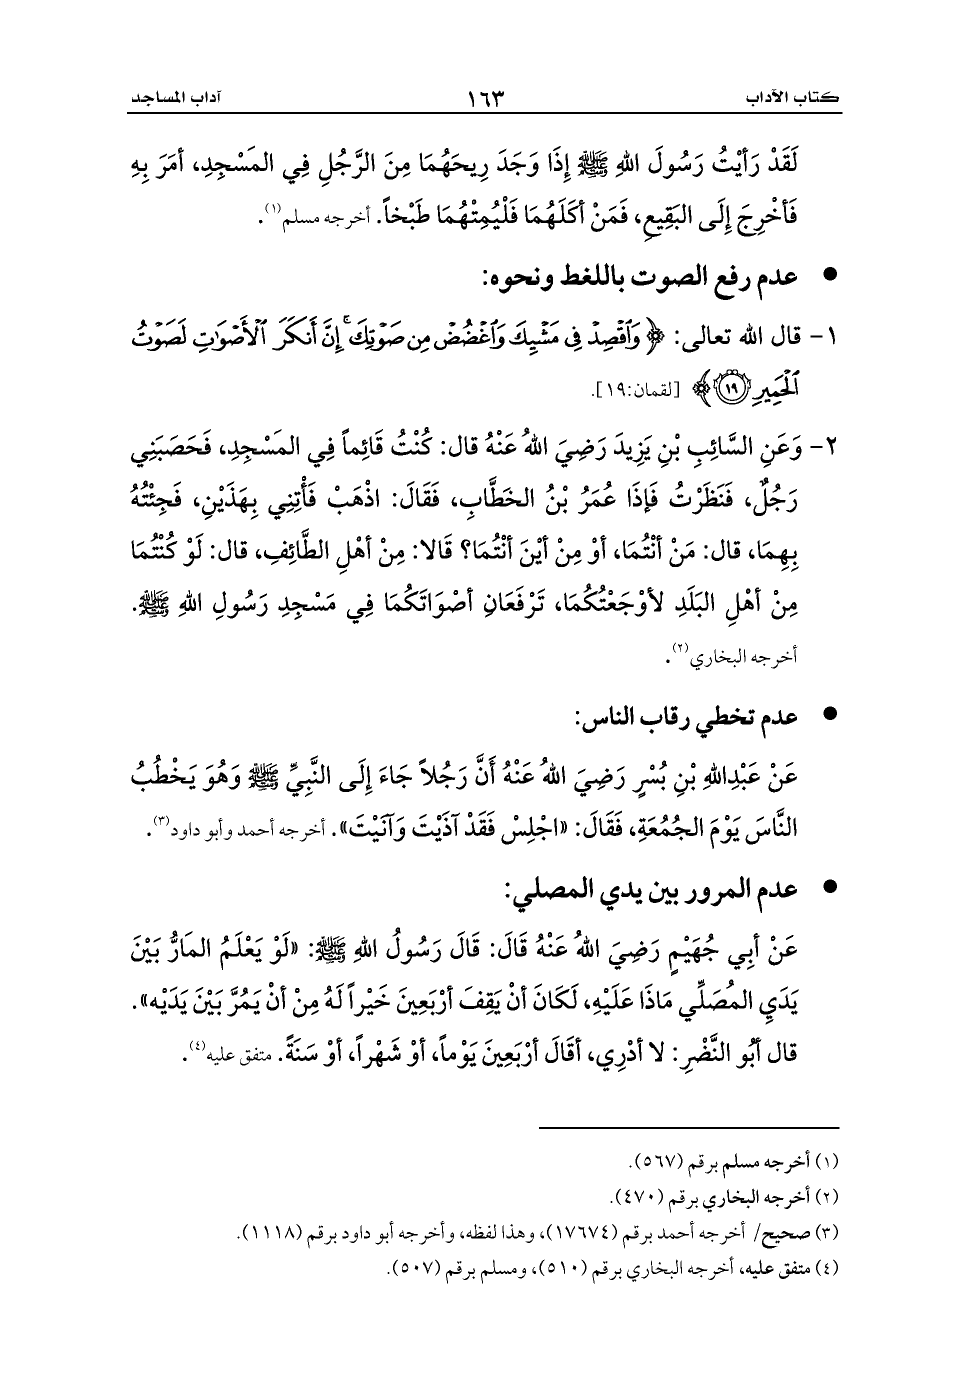 كتاب الآداب ١٦٣ آداب المساجد
لَقَدْ رَأَيْتُ رَسُولَ اللهِ ﷺ إِذَا وَجَدَ رِيحَهُمَا مِنَ الرَّجُلِ فِي المَسْجِدِ، أَمَرَ بِهِ
فَأُخْرِجَ إِلَى البَقِيعِ، فَمَنْ أَكَلَهُمَا فَلْيُمِتْهُمَا طَبْخاً. أخرجه مسلم(١).
● عدم رفع الصوت باللغط ونحوه:
١- قال الله تعالى: ﴿وَٱقْصِدْ فِى مَشْيِكَ وَٱغْضُضْ مِن صَوْتِكَ ۚ إِنَّ أَنكَرَ ٱلْأَصْوَٰتِ لَصَوْتُ
ٱلْحَمِيرِ ١٩﴾ [لقمان:١٩].
٢- وَعَنِ السَّائِبِ بْنِ يَزِيدَ رَضِيَ اللهُ عَنْهُ قال: كُنْتُ قَائِماً فِي المَسْجِدِ، فَحَصَبَنِي
رَجُلٌ، فَنَظَرْتُ فَإِذَا عُمَرُ بْنُ الخَطَّابِ، فَقَالَ: اذْهَبْ فَأْتِنِي بِهَذَيْنِ، فَجِئْتُهُ
بِهِمَا، قال: مَنْ أَنْتُمَا، أَوْ مِنْ أَيْنَ أَنْتُمَا؟ قَالا: مِنْ أَهْلِ الطَّائِفِ، قال: لَوْ كُنْتُمَا
مِنْ أَهْلِ البَلَدِ لأَوْجَعْتُكُمَا، تَرْفَعَانِ أَصْوَاتَكُمَا فِي مَسْجِدِ رَسُولِ اللهِ ﷺ.
أخرجه البخاري(٢).
● عدم تخطي رقاب الناس:
عَنْ عَبْدِاللهِ بْنِ بُسْرٍ رَضِيَ اللهُ عَنْهُ أَنَّ رَجُلاً جَاءَ إِلَى النَّبِيِّ ﷺ وَهُوَ يَخْطُبُ
النَّاسَ يَوْمَ الجُمُعَةِ، فَقَالَ: «اجْلِسْ فَقَدْ آذَيْتَ وَآنَيْتَ». أخرجه أحمد وأبو داود(٣).
● عدم المرور بين يدي المصلي:
عَنْ أَبِي جُهَيْمٍ رَضِيَ اللهُ عَنْهُ قَالَ: قَالَ رَسُولُ اللهِ ﷺ: «لَوْ يَعْلَمُ المَارُّ بَيْنَ
يَدَيِ المُصَلِّي مَاذَا عَلَيْهِ، لَكَانَ أَنْ يَقِفَ أَرْبَعِينَ خَيْراً لَهُ مِنْ أَنْ يَمُرَّ بَيْنَ يَدَيْه».
قال أَبُو النَّضْرِ: لا أَدْرِي، أَقَالَ أَرْبَعِينَ يَوْماً، أَوْ شَهْراً، أَوْ سَنَةً. متفق عليه(٤).
(١) أخرجه مسلم برقم (٥٦٧).
(٢) أخرجه البخاري برقم (٤٧٠).
(٣) صحيح/ أخرجه أحمد برقم (١٧٦٧٤)، وهذا لفظه، وأخرجه أبو داود برقم (١١١٨).
(٤) متفق عليه، أخرجه البخاري برقم (٥١٠)، ومسلم برقم (٥٠٧).